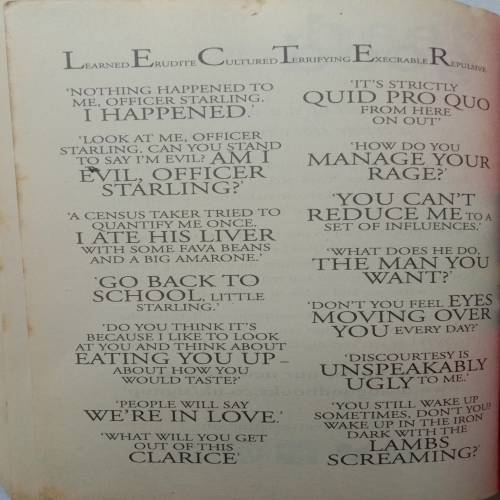 LEARNED ERUDITE CULTURED TERRIFYING EXECRABLE REPULSIVE
'NOTHING HAPPENED TO
ME, OFFICER STARLING.
I HAPPENED.'
'LOOK AT ME, OFFICER
STARLING. CAN YOU STAND
TO SAY I'M EVIL? AM I
EVIL, OFFICER
STARLING?'
'A CENSUS TAKER TRIED TO
QUANTIFY ME ONCE.
I ATE HIS LIVER
WITH SOME FAVA BEANS
AND A BIG AMARONE.'
'GO BACK TO
SCHOOL, LITTLE
STARLING.'
'DO YOU THINK IT'S
BECAUSE I LIKE TO LOOK
AT YOU AND THINK ABOUT
EATING YOU UP –
ABOUT HOW YOU
WOULD TASTE?'
'PEOPLE WILL SAY
WE'RE IN LOVE.'
'WHAT WILL YOU GET
OUT OF THIS
CLARICE'
'IT'S STRICTLY
QUID PRO QUO
FROM HERE
ON OUT'
'HOW DO YOU
MANAGE YOUR
RAGE?'
'YOU CAN'T
REDUCE ME TO A
SET OF INFLUENCES.'
'WHAT DOES HE DO,
THE MAN YOU
WANT?'
'DON'T YOU FEEL EYES
MOVING OVER
YOU EVERY DAY?'
'DISCOURTESY IS
UNSPEAKABLY
UGLY TO ME.'
'YOU STILL WAKE UP
SOMETIMES, DON'T YOU?
WAKE UP IN THE IRON
DARK WITH THE
LAMBS
SCREAMING?'